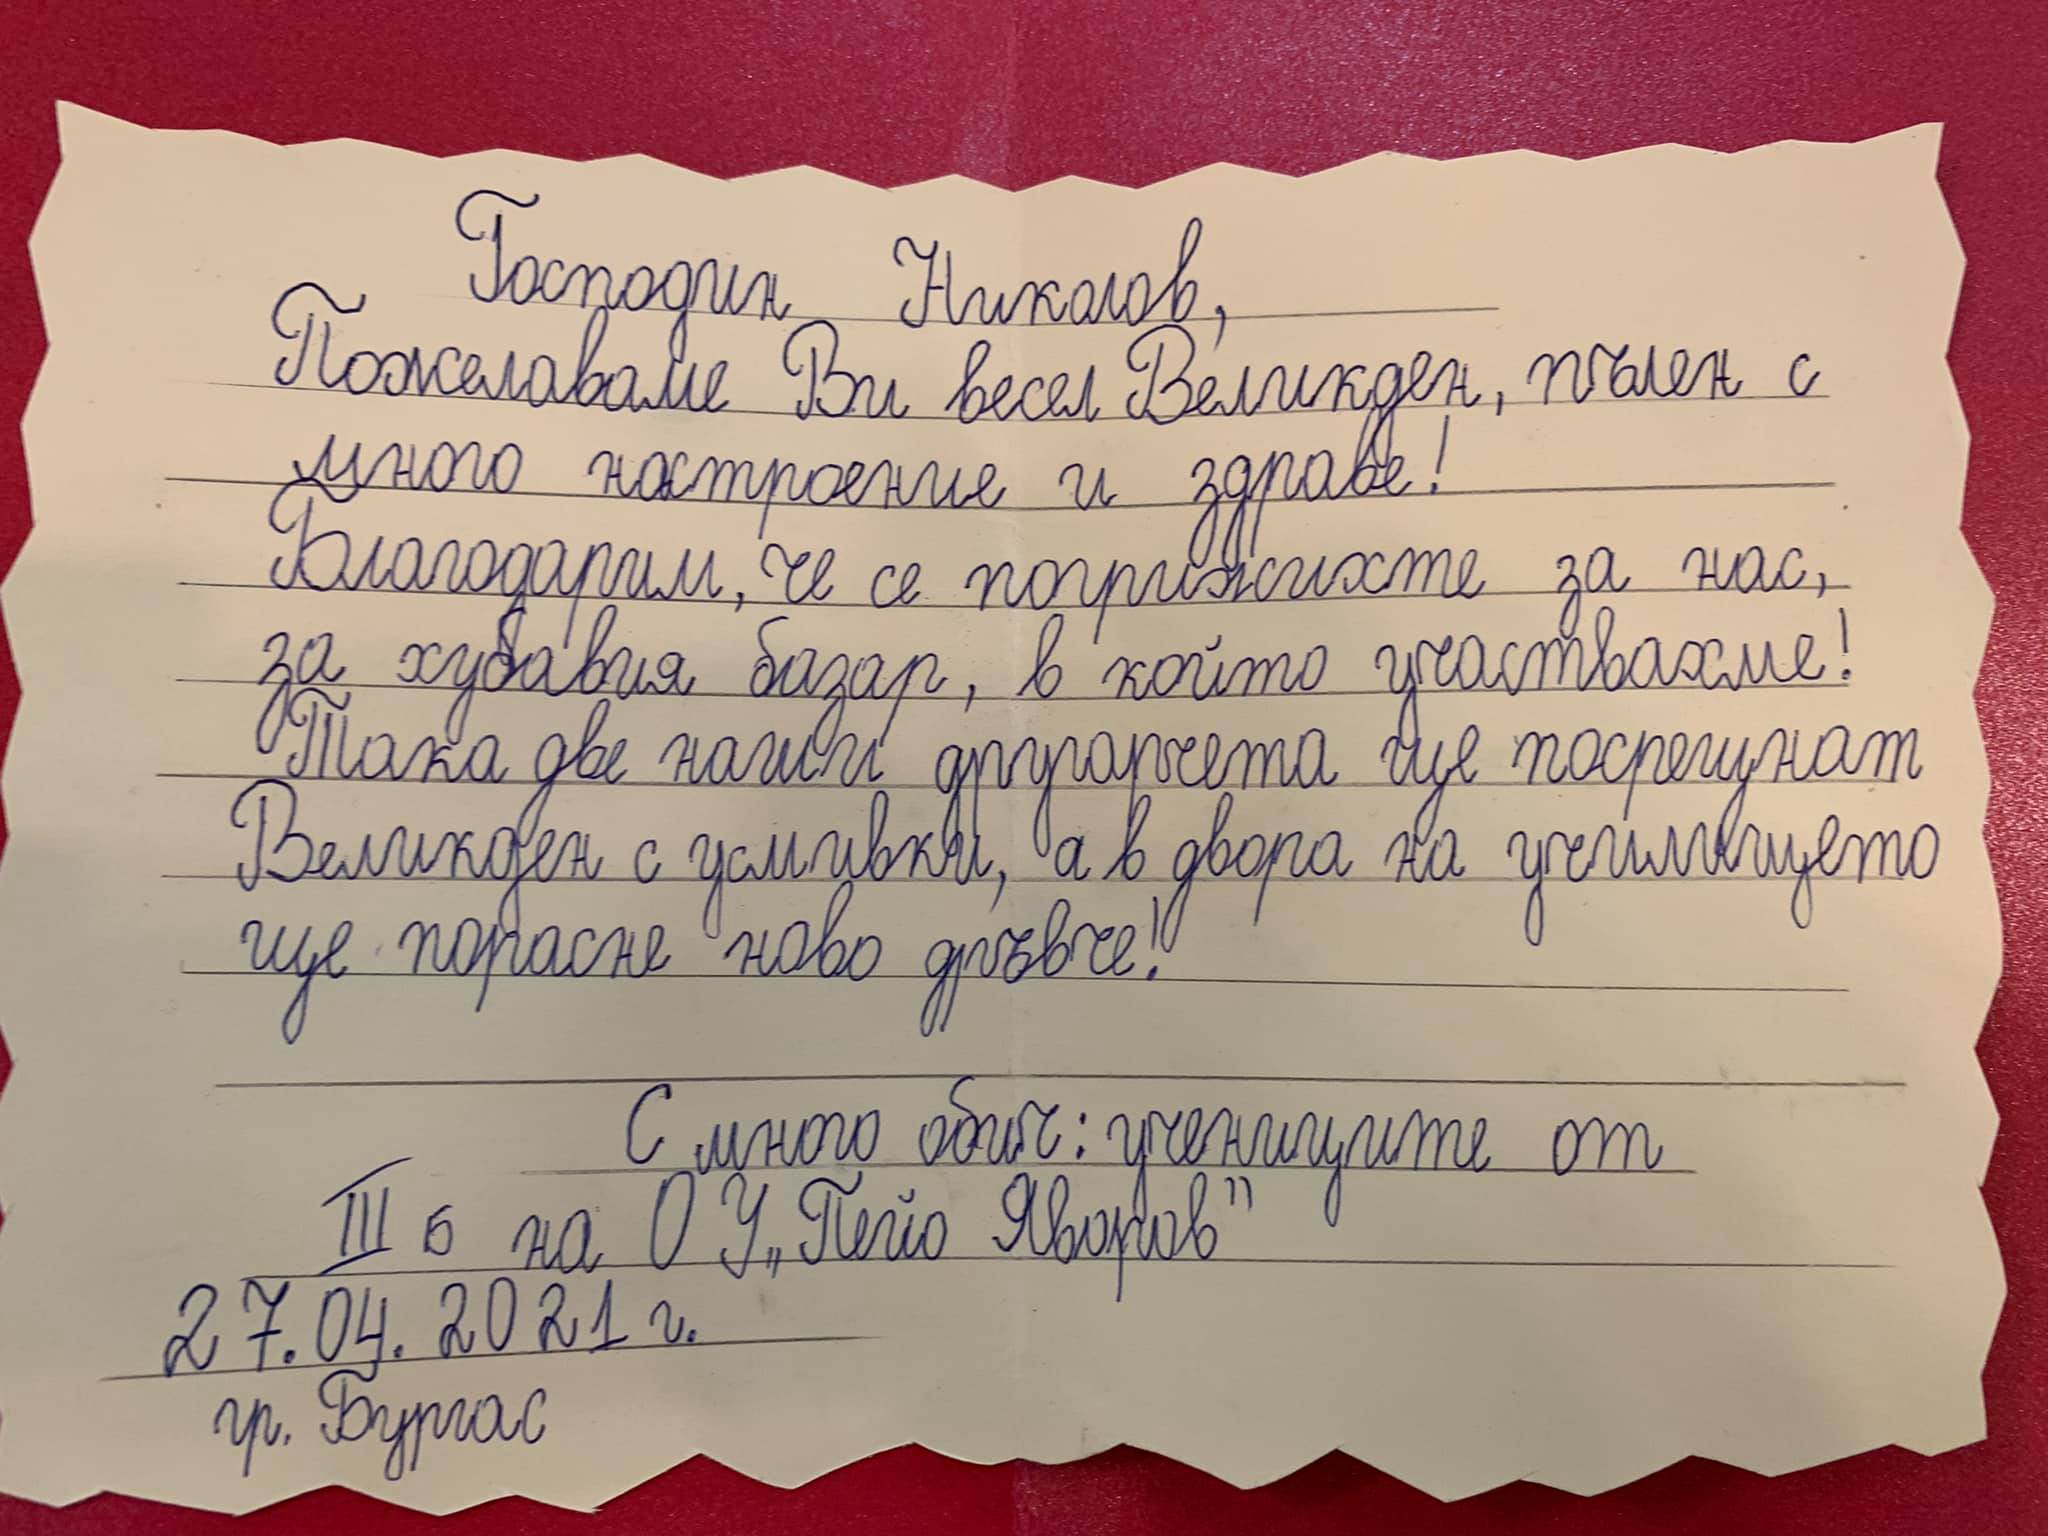 Господин Николов,
Пожелаваме Ви весел Великден, пълен с
много настроение и здраве!
Благодарим, че се погрижихте за нас,
за хубавия базар, в който участвахме!
Така две наши другарчета ще посрещнат
Великден с усмивки, а в двора на училището
ще порасне ново дръвче!
С много обич: учениците от
III б на ОУ „Пейо Яворов”
27.04.2021 г.
гр. Бургас